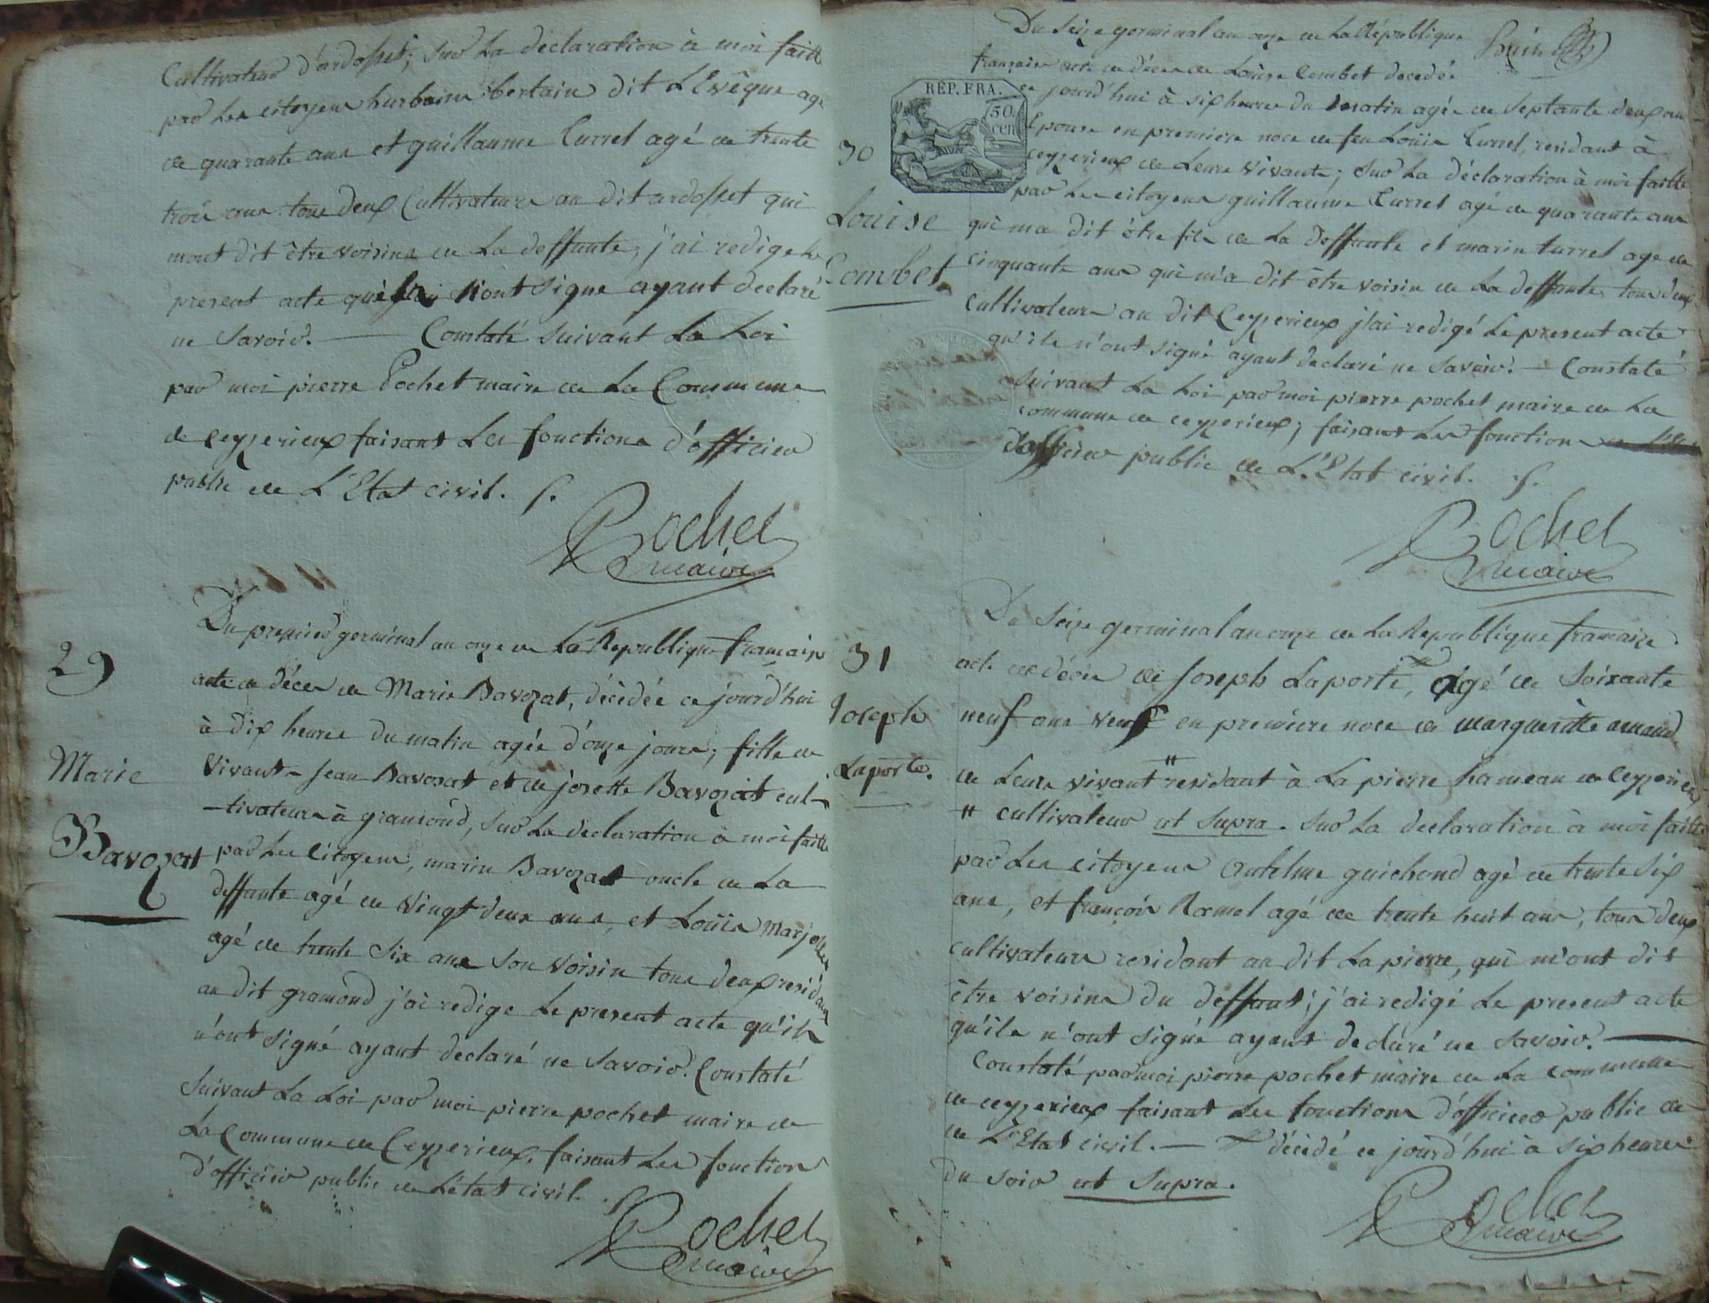 Cultivateur d'ardosset; sur La declaration à moi faitte
par Les citoyens hurbain bertain dit L'Evêque agé
de quarante ans et guillaume Curret agé de trente
trois ans tous deux Cultivateurs au dit ardosset qui
mont dit être voisins de La deffunte, j'ai redigé le
present acte qu'ils n'ont signé ayant declaré
ne Savoir. — Constaté Suivant La Loi
par moi pierre Pochet maire de La Commune
de Ceyzerieux faisant Les fonctions d'officier
public de L'Etat civil. f.
Pochet
maire
29
Marie
Bavozat
Du premier germinal an onze de La Republique française
acte de décès de Marie Bavozat, décédée ce jourd'hui
à dix heures du matin agée d'onze jours; fille de
vivants Jean Bavozat et de josette Bavozat cul-
-tivateurs à gramond, sur La declaration à moi faitte
par Les Citoyens, marin Bavozat oncle de La
deffunte agé de vingt deux ans, et Loüis Marjollet
agé de trente Six ans Son voisin tous deux residans
au dit gramond j'ai redigé Le present acte qu'ils
n'ont signé ayant declaré ne Savoir. Constaté
Suivant La Loi par moi pierre pochet maire de
La Commune de Ceyzerieux, faisant Les fonctions
d'officier public de L'état civil.
Pochet
maire
30
Louise
Combet
RÉP. FRA.
50
cen
Du Seize germinal an onze de La République
française acte de décès de Loüise Combet decedée
ce jourd'hui à six heures du matin agée de Septante deux ans
Epouse en premiere noce de feu Loüis Curret, residant à
ceyzerieux de Leurs vivants; Sur La déclaration à moi faitte
par Les citoyens guillaume Curret agé de quarante ans
qui ma dit être fils de La Deffunte et marin turret agé de
cinquante ans qui m'a dit être voisin de La deffunte tous deux
Cultivateurs au dit Ceyzerieux j'ai redigé Le present acte
qu'ils n'ont signé ayant declaré ne Savoir. — Constaté
Suivant La Loi par moi pierre pochet maire de La
commune de ceyzérieux; faisant Les fonctions
d'officier public de L'Etat civil. f.
Pochet
maire
31
Joseph
Laporte.
Du Seize germinal an onze de La Republique française.
acte de décès de Joseph Laporte, agé de Soixante
neuf ans veuf en première noce de margueritte arnaud
de Leurs vivant " residant à La pierre hameau de Ceyzerieux
" cultivateur ut Supra. Sur La declaration à moi faitte
par Les citoyens Antelme guichond agé de trente Six
ans, et françois Ramel agé de trente huit ans, tous deux
cultivateurs residant au dit La pierre, qui m'ont dit
être voisins du deffunt; j'ai redigé Le present acte
qu'ils n'ont signé ayant declaré ne Savoir. —
Constaté par moi pierre pochet maire de La commune
de ceyzerieux faisant Les fonctions d'officier public de
de L'Etat civil. — décédé ce jourd'hui à six heures
du soir ut Supra.
Pochet
maire